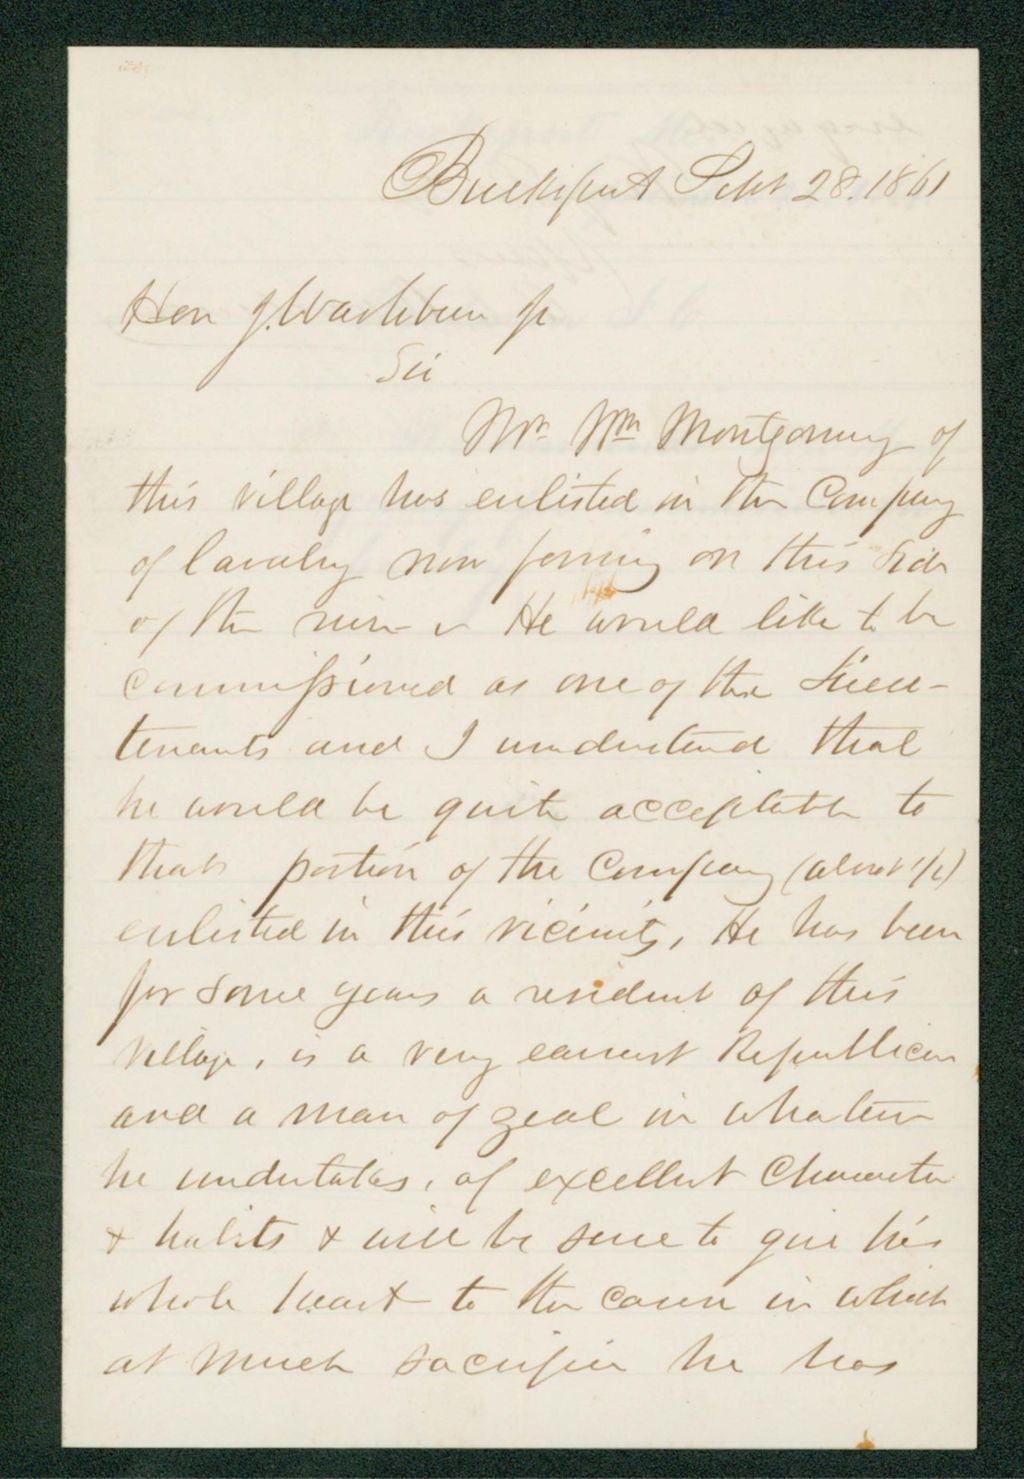 Bucksport Sept 28. 1861
Hon J. Washburn Jr
Sir
Mr. Wm Montgomery of
this village has enlisted in the Company
of Cavalry now forming on this side
of the river & He would like to be
commissioned as one of the Lieu-
tenants and I understand that
he would be quite acceptable to
that portion of the Company (about 1/2)
enlisted in this vicinity, He has been
for some years a resident of this
village, is a very earnest Republican
and a man of zeal in whatever
he undertakes, of excellent Character
& habits & will be sure to give his
whole heart to the cause in which
at much sacrifice he has